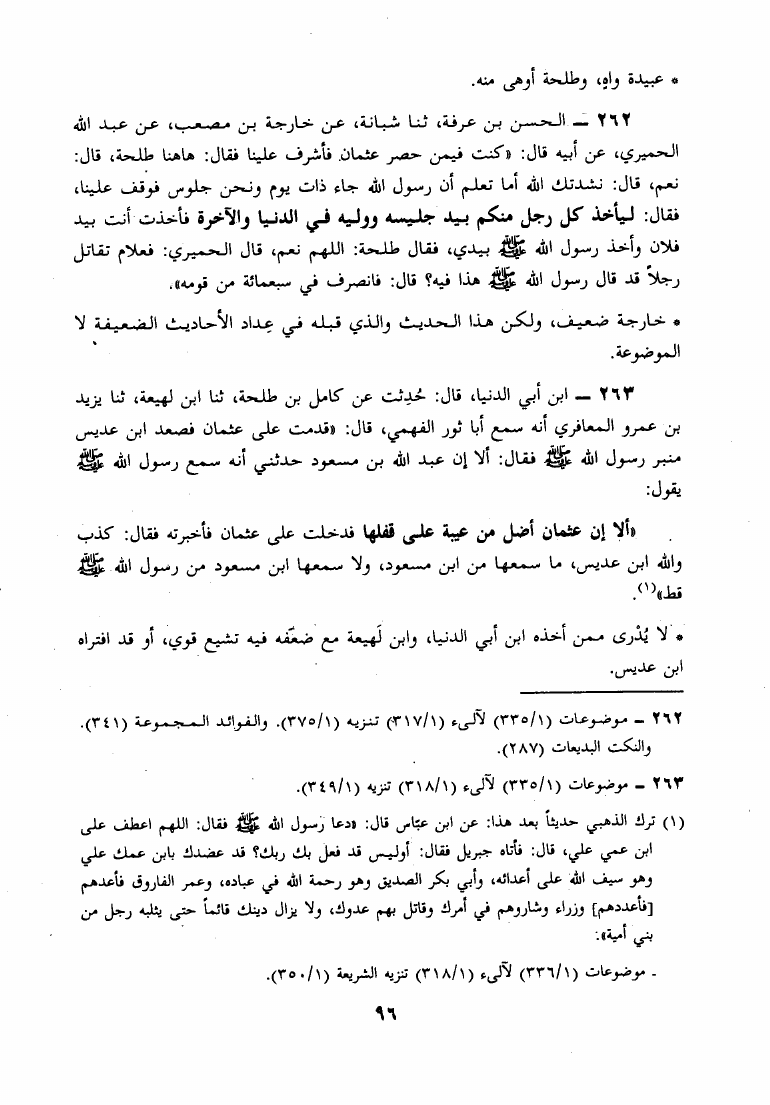 * عبيدة واهٍ، وطلحة أوهى منه.
٢٦٢ ــ الحسن بن عرفة، ثنا شبانة، عن خارجة بن مصعب، عن عبد الله
الحميري، عن أبيه قال: «كنت فيمن حصر عثمان. فأشرف علينا فقال: هاهنا طلحة، قال:
نعم، قال: نشدتك الله أما تعلم أن رسول الله جاء ذات يوم ونحن جلوس فوقف علينا،
فقال: ليأخذ كل رجل منكم بيد جليسه ووليه في الدنيا والآخرة فأخذت أنت بيد
فلان وأخذ رسول الله ﷺ بيدي، فقال طلحة: اللهم نعم، قال الحميري: فعلام تقاتل
رجلاً قد قال رسول الله ﷺ هذا فيه؟ قال: فانصرف في سبعمائة من قومه».
* خارجة ضعيف، ولكن هذا الحديث والذي قبله في عِداد الأحاديث الضعيفة لا
الموضوعة.
٢٦٣ ــ ابن أبي الدنيا، قال: حُدِثت عن كامل بن طلحة، ثنا ابن لهيعة، ثنا يزيد
بن عمرو المعافري أنه سمع أبا ثور الفهمي، قال: «قدمت على عثمان فصعد ابن عديس
منبر رسول الله ﷺ فقال: ألا إن عبد الله بن مسعود حدثني أنه سمع رسول الله ﷺ
يقول:
«ألا إن عثمان أضل من عيبة على قفلها فدخلت على عثمان فأخبرته فقال: كذب
والله ابن عديس، ما سمعها من ابن مسعود، ولا سمعها ابن مسعود من رسول الله ﷺ
قط»(١).
* لا يُدْرى ممن أخذه ابن أبي الدنيا، وابن لَهيعة مع ضعْفه فيه تشيع قوي، أو قد افتراه
ابن عديس.
٢٦٢ ــ موضوعات (٣٣٥/١) لآلىء (٣١٧/١) تنزيه (٣٧٥/١). والفوائد المجموعة (٣٤١).
والنكت البديعات (٢٨٧).
٢٦٣ ــ موضوعات (٣٣٥/١) لآلىء (٣١٨/١) تنزيه (٣٤٩/١).
(١) ترك الذهبي حديثاً بعد هذا: عن ابن عبّاس قال: «دعا رسول الله ﷺ فقال: اللهم اعطف على
ابن عمي علي، قال: فأتاه جبريل فقال: أوليس قد فعل بك ربك؟ قد عضدك بابن عمك علي
وهو سيف الله على أعدائه، وأبي بكر الصديق وهو رحمة الله في عباده، وعمر الفاروق فأعدهم
[فأعددهم] وزراء وشاروهم في أمرك وقاتل بهم عدوك، ولا يزال دينك قائماً حتى يثلبه رجل من
بني أمية»:
- موضوعات (٣٣٦/١) لآلىء (٣١٨/١) تنزيه الشريعة (٣٥٠/١).
٩٦